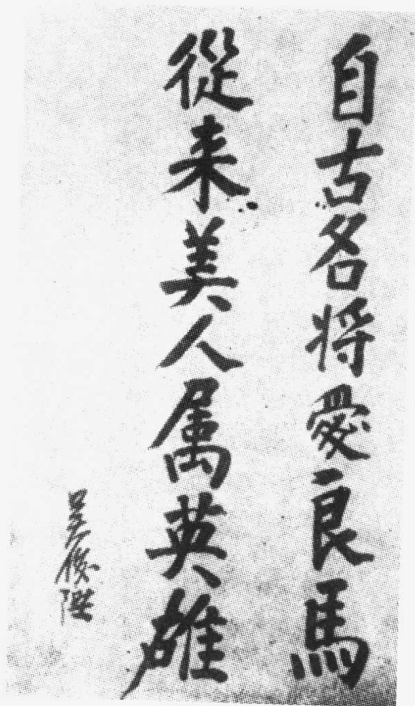 自古名将愛良馬
從来美人属英雄
吴俊陞